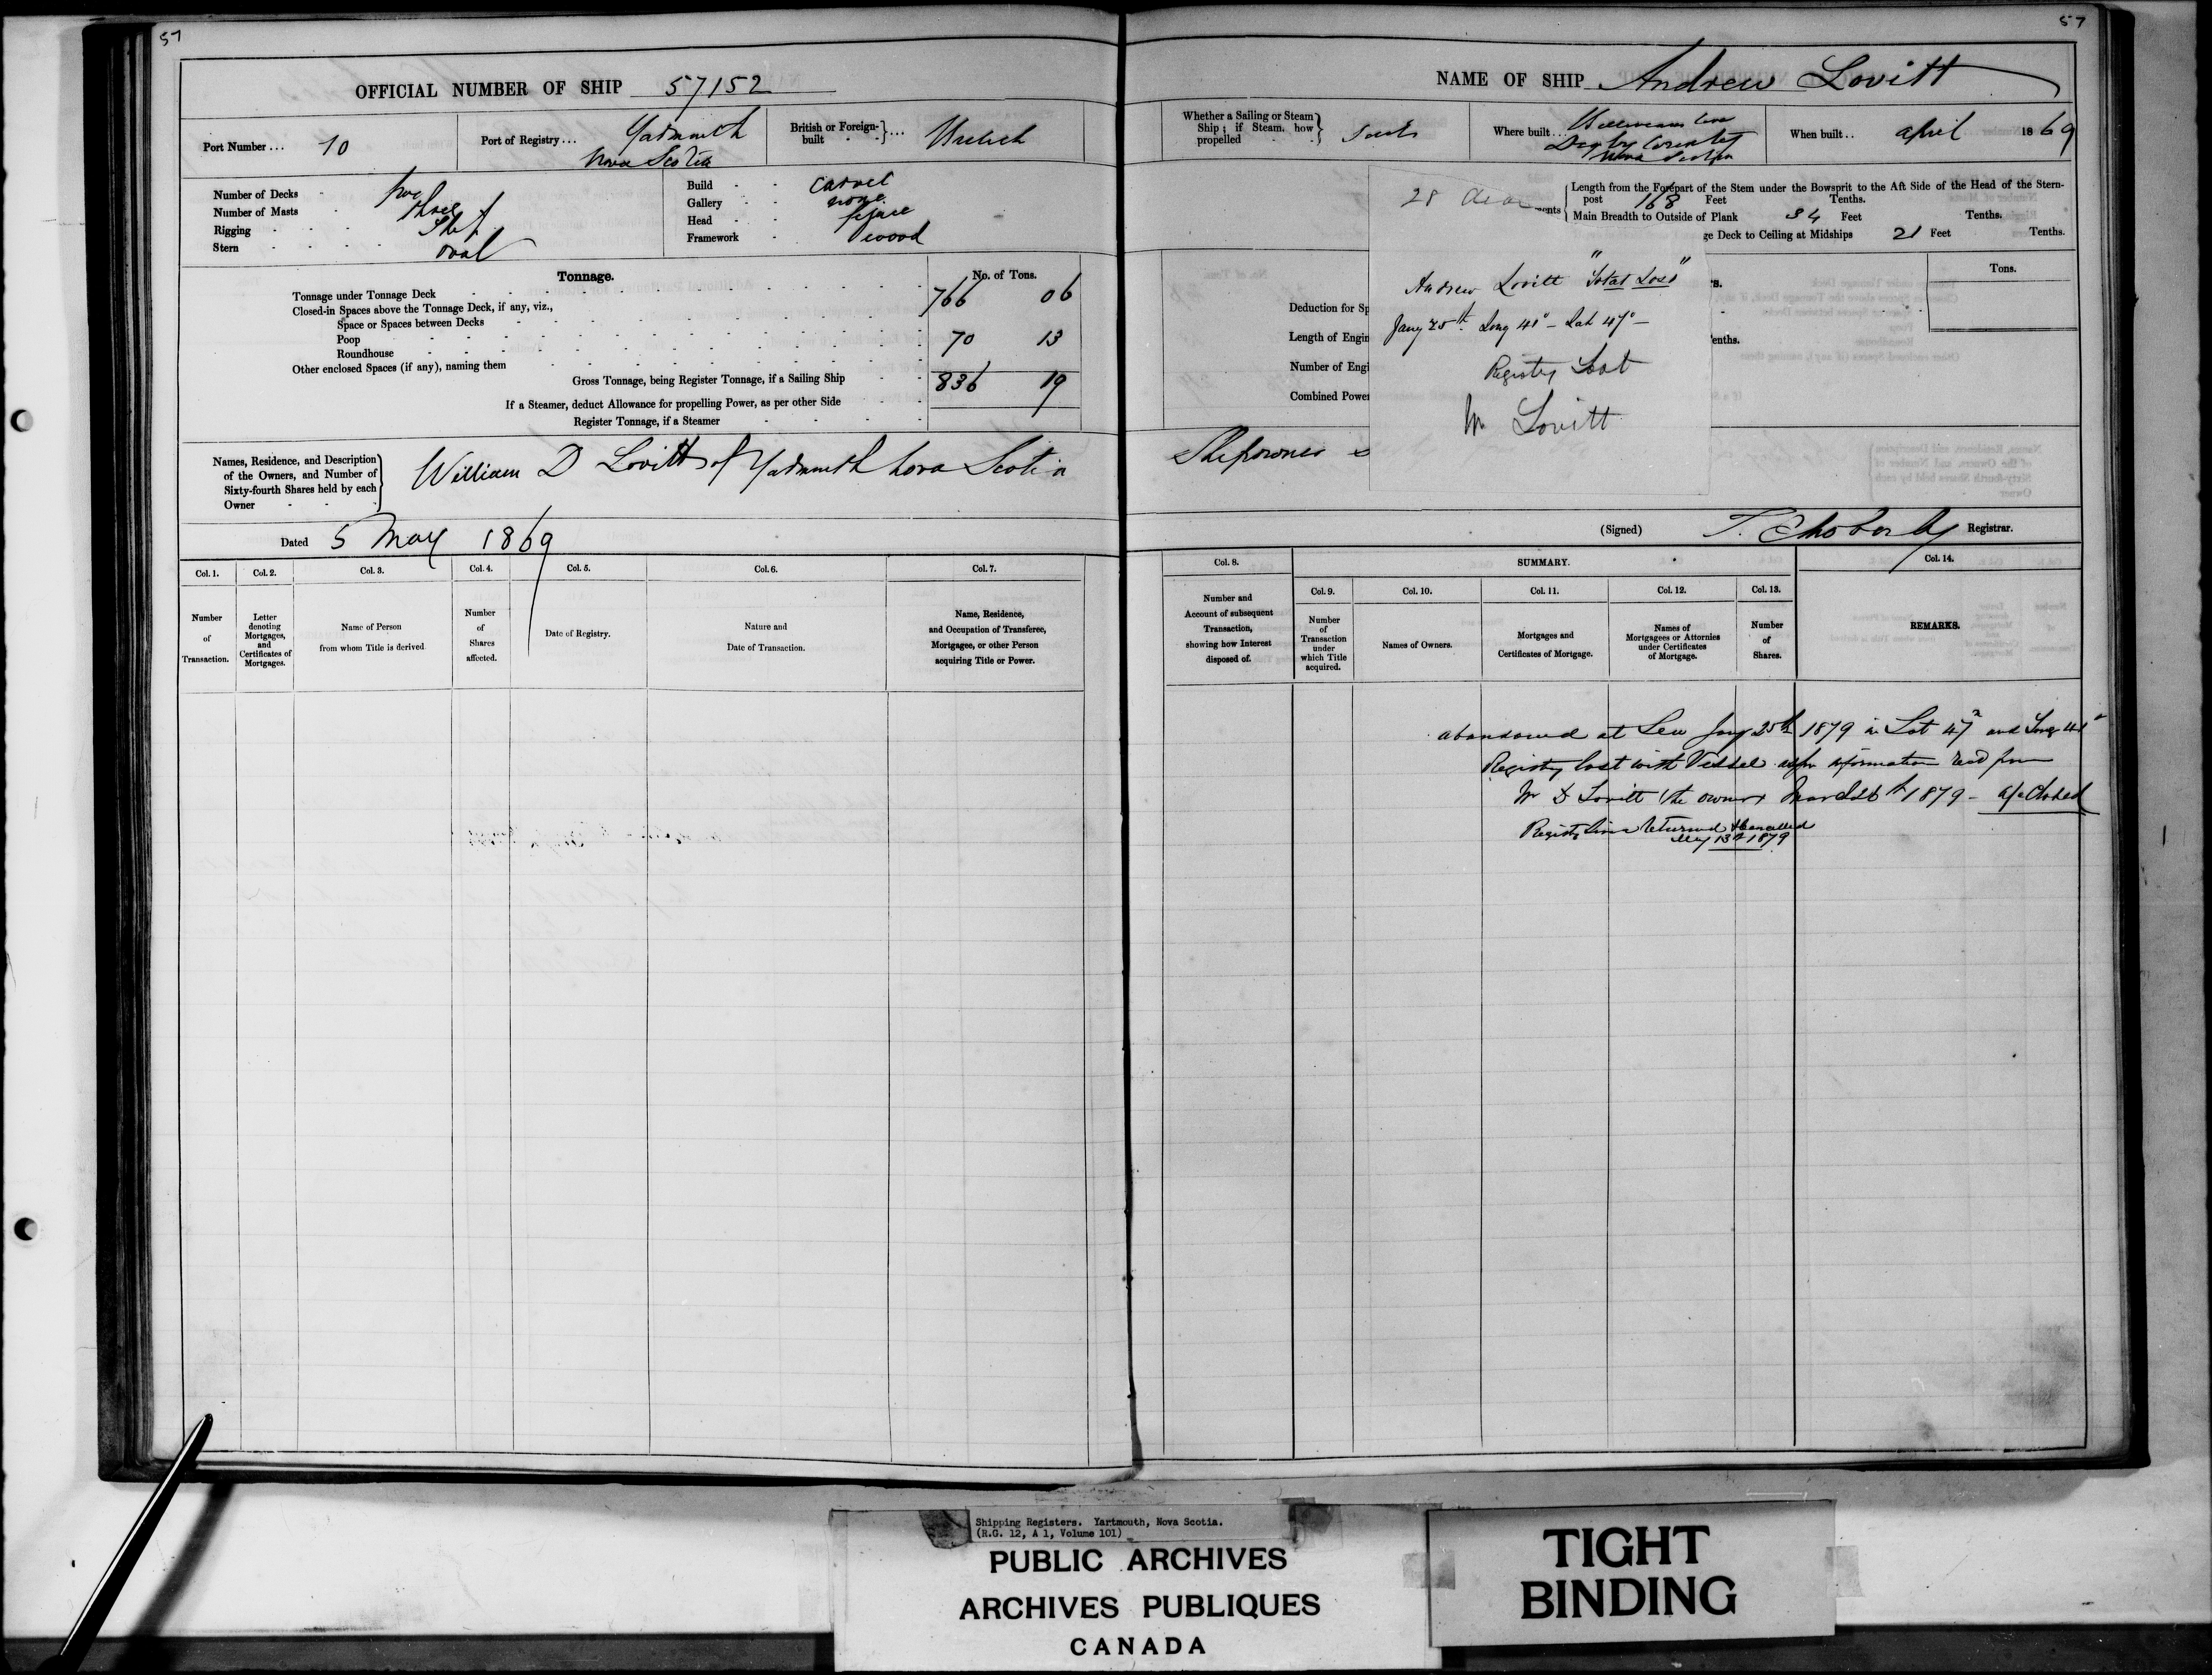 57
OFFICIAL NUMBER OF SHIP 57152
Port Number... 10
Port of Registry... Yarmouth
Nova Scotia
British or Foreign-built ... British
Number of Decks - Two
Number of Masts - Three
Rigging - Ship
Stern - oval
Build - Carvel
Gallery - none
Head
Framework - Wood
Tonnage.
No. of Tons.
Tonnage under Tonnage Deck 766 06
Closed-in Spaces above the Tonnage Deck, if any, viz.,
Space or Spaces between Decks
Poop 70 13
Roundhouse
Other enclosed Spaces (if any), naming them
Gross Tonnage, being Register Tonnage, if a Sailing Ship 836 19
If a Steamer, deduct Allowance for propelling Power, as per other Side
Register Tonnage, if a Steamer
Names, Residence, and Description
of the Owners, and Number of
Sixty-fourth Shares held by each
Owner
William D Lovitt of Yarmouth Nova Scotia
Dated 5 May 1869
Col. 1. Col. 2. Col. 3. Col. 4. Col. 5. Col. 6. Col. 7.
Number of Transaction.
Letter denoting Mortgages, and Certificates of Mortgages.
Name of Person from whom Title is derived
Number of Shares affected.
Date of Registry.
Nature and Date of Transaction.
Name, Residence, and Occupation of Transferee, Mortgagee, or other Person acquiring Title or Power.
57
NAME OF SHIP Andrew Lovitt
Whether a Sailing or Steam
Ship; if Steam, how
propelled
Where built...
Digby County
Nova Scotia
When built.. april 1869
28
Length from the Forepart of the Stem under the Bowsprit to the Aft Side of the Head of the Stern-
post 168 Feet Tenths.
Main Breadth to Outside of Plank 34 Feet Tenths.
ge Deck to Ceiling at Midships 21 Feet Tenths.
Tons.
Deduction for Sp
Length of Engin
enths.
Number of Engi
Combined Power
Andrew Lovitt "Total Loss"
Jany 25th Long 41° - Lat 47° -
Registry Lost
W Lovitt
Shipowner
(Signed) Registrar.
Col. 8. SUMMARY. Col. 14.
Col. 9. Col. 10. Col. 11. Col. 12. Col. 13.
Number and Account of subsequent Transaction, showing how Interest disposed of.
Number of Transaction under which Title acquired.
Names of Owners.
Mortgages and Certificates of Mortgage.
Names of Mortgagees or Attornies under Certificates of Mortgage.
Number of Shares.
REMARKS.
abandoned at Sea Jany 25th 1879 in Lat 47° and Long 41°
Registry lost with Vessel as per information recd from
W D Lovitt the owner 1879 - a/c Closed
Returned & Cancelled
May 13th 1879
Shipping Registers. Yartmouth, Nova Scotia.
(R.G. 12, A 1, Volume 101)
PUBLIC ARCHIVES
ARCHIVES PUBLIQUES
CANADA
TIGHT
BINDING